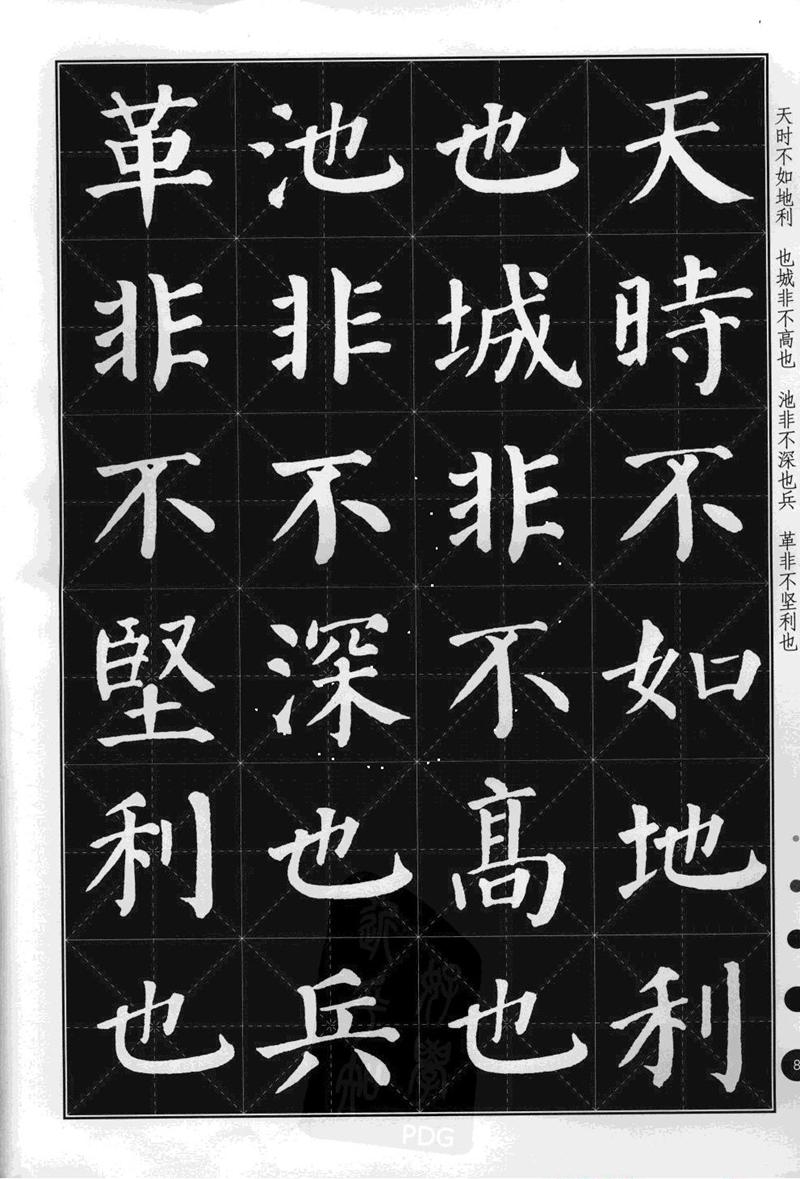 天時不如地利
也城非不高也
池非不深也兵
革非不堅利也
天时不如地利 也城非不高也 池非不深也兵 革非不坚利也
8
PDG